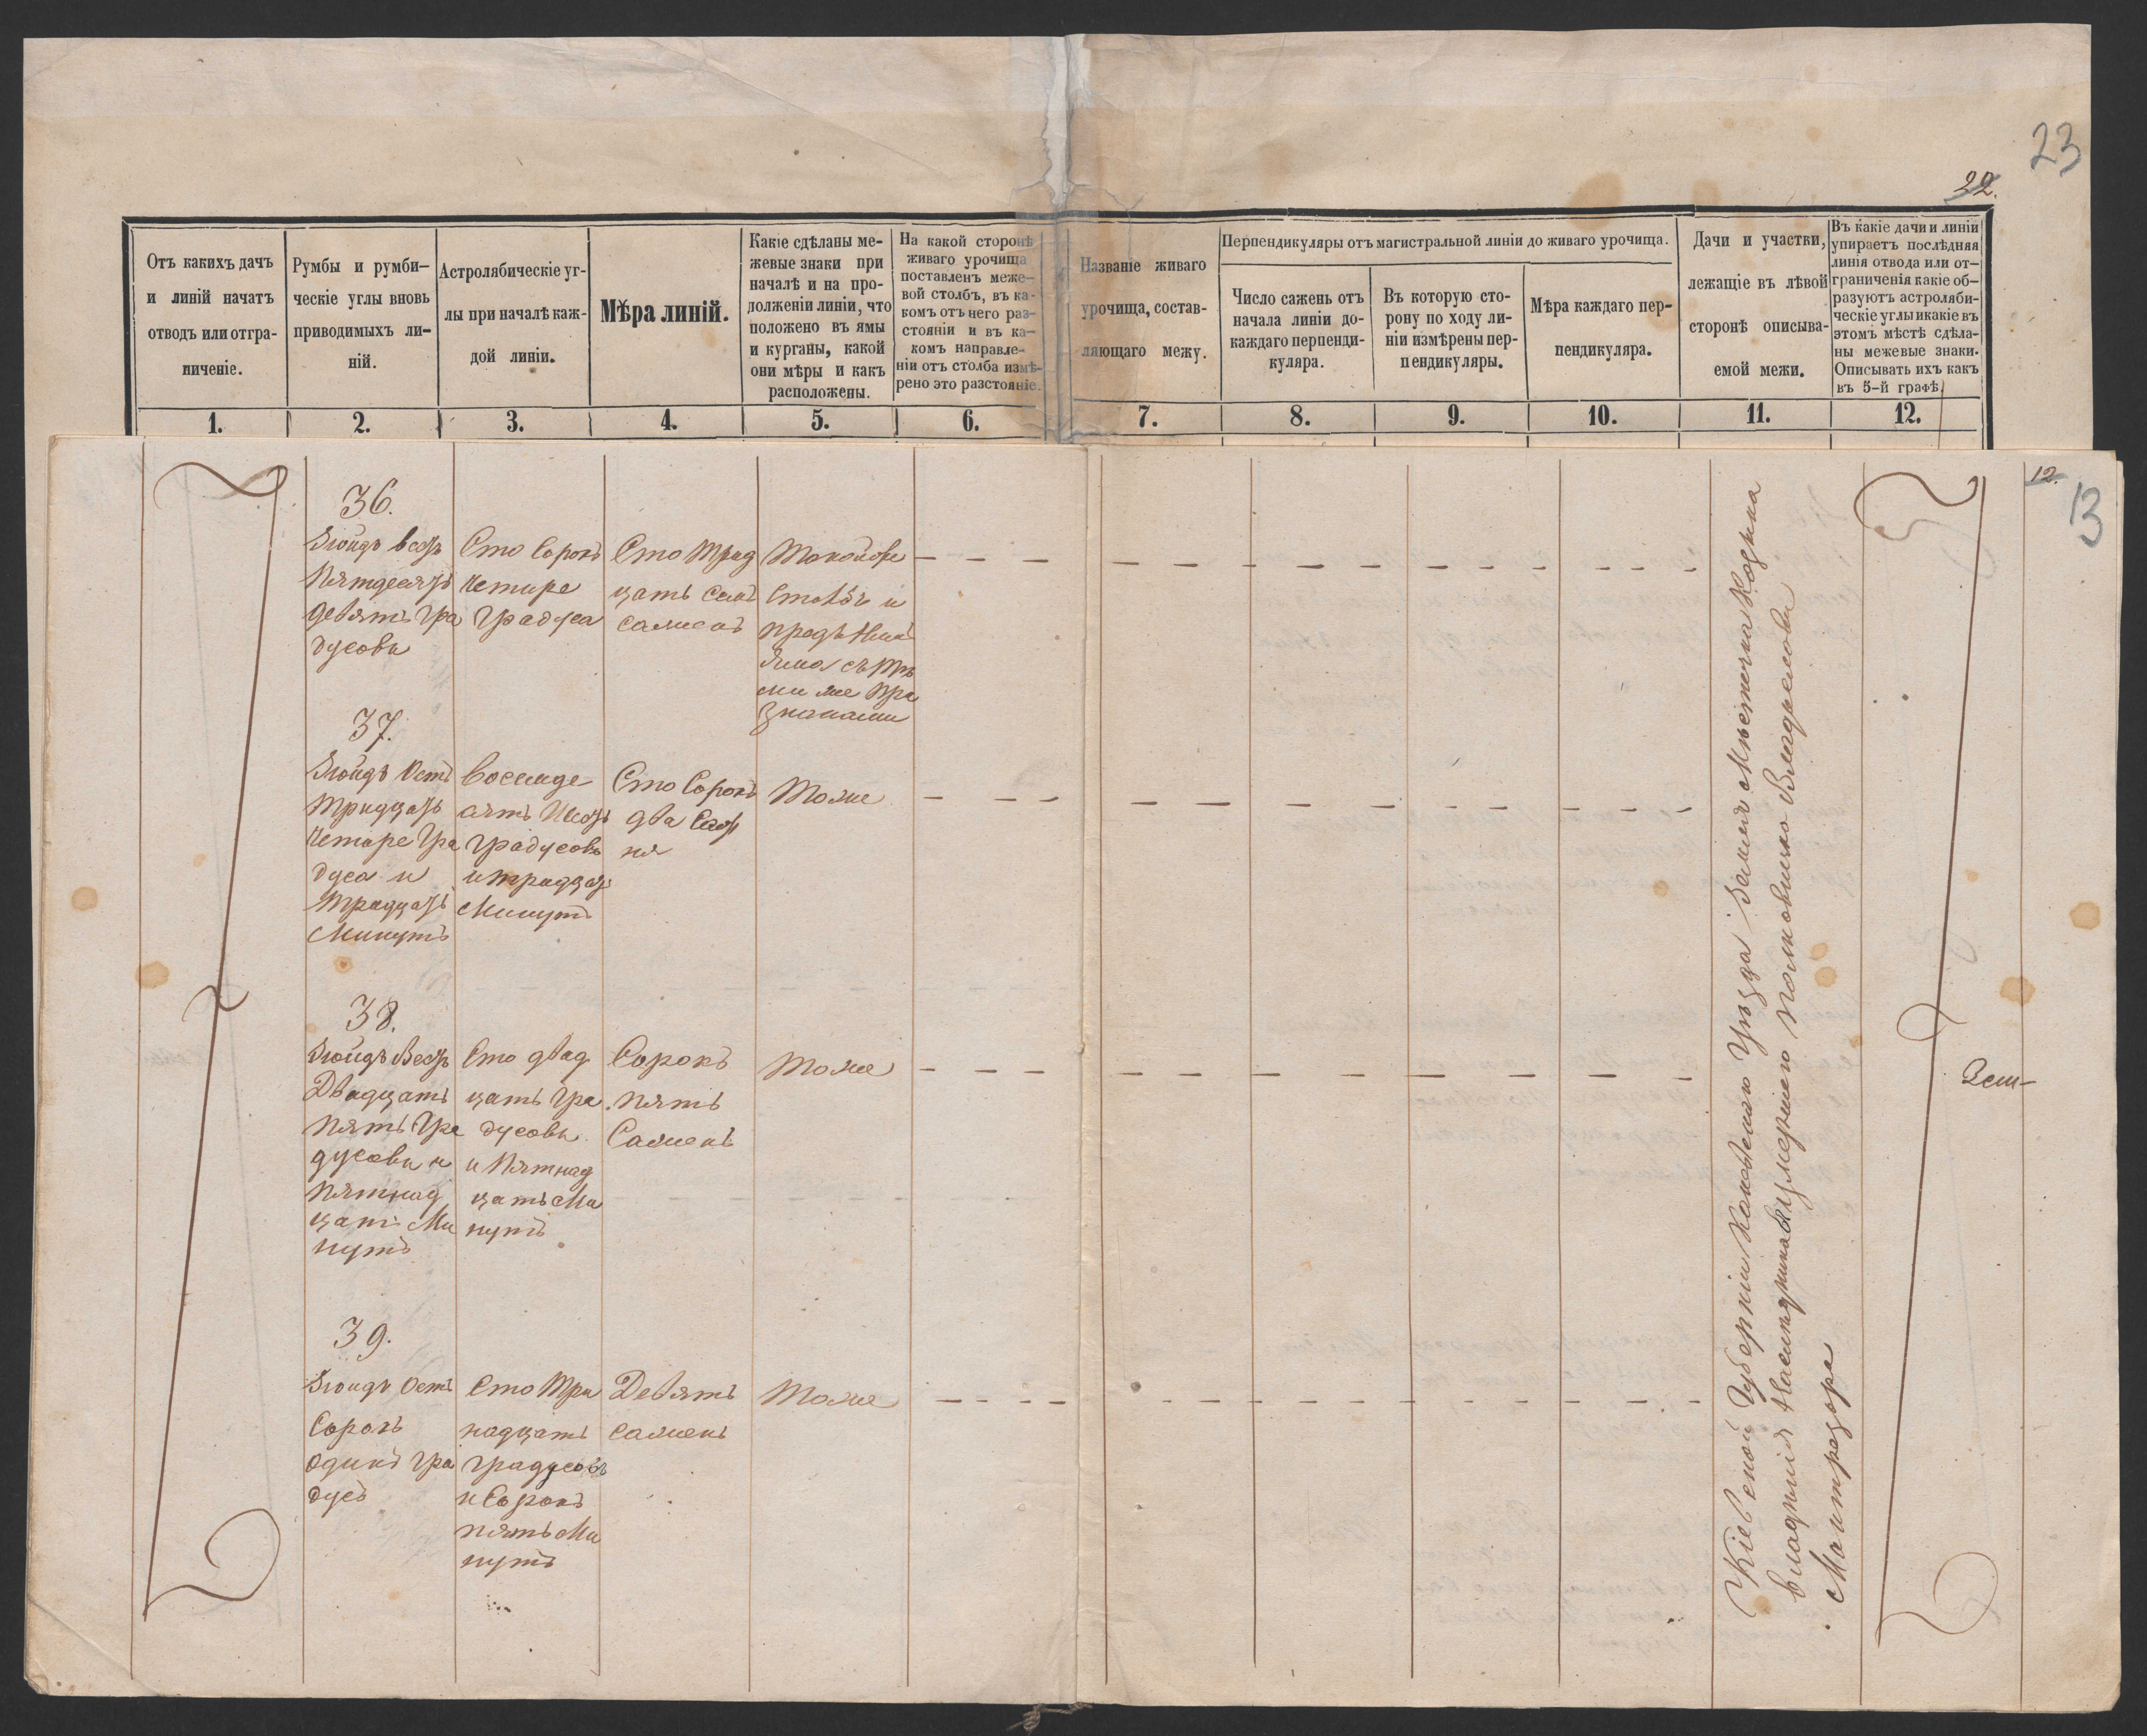 23
22.
Отъ какихъ дачъ
и линій начатъ
отводъ или отгра-
ниченіе.
Румбы и румби-
ческіе углы вновь
приводимыхъ ли-
ній.
Астролябическіе уг-
лы при началѣ каж-
дой линіи.
Мѣра линій.
Какіе сдѣланы ме-
жевые знаки при
началѣ и на про-
долженіи линіи, что
положено въ ямы
и курганы, какой
они мѣры и какъ
расположены.
На какой сторонѣ
живаго урочища
поставленъ меже-
вой столбъ, въ ка-
комъ отъ него раз-
стояніи и въ ка-
комъ направле-
ніи отъ столба измѣ-
рено это разстояніе.
Названіе живаго
урочища, состав-
ляющаго межу.
Перпендикуляры отъ магистральной линіи до живаго урочища.
Число сажень отъ
начала линіи до-
каждаго перпенди-
куляра.
Въ которую сто-
рону по ходу ли-
ніи измѣрены пер-
пендикуляры.
Мѣра каждаго пер-
пендикуляра.
Дачи и участки,
лежащіе въ лѣвой
сторонѣ описыва-
емой межи.
Въ какіе дачи и линіи
упираетъ послѣдняя
линія отвода или от-
граниченія какіе об-
разуютъ астроляби-
ческіе углы и какіе въ
этомъ мѣстѣ сдѣла-
ны межевые знаки.
Описывать ихъ какъ
въ 5-й графѣ.
1. 2. 3. 4. 5. 6. 7. 8. 9. 10. 11. 12.
12.
13
36.
Зюйдъ Вестъ
Пятдесятъ
девять гра
дусовъ
Сто Сорокъ
четыре
градуса
Сто Трид
цать семь
сажень
Такой же
Столбъ и
предъ нимъ
яма съ тѣ
ми же при
знаками
37.
Зюйдъ Остъ
Тридцать
четыре гра
дуса и
тридцать
Минутъ
Восемде-
сятъ Шесть
градусовъ
и тридцать
Минутъ
Сто Сорокъ
два Саж
ня
Тоже
38.
Зюйдъ Вестъ
Двадцать
пять Гра
дусовъ и
пятнад
цать Ми
нутъ
Сто двад
цать Гра
дусовъ
и Пятнад
цать Ми
нутъ
Сорокъ
пять
Сажень
Тоже
39.
Зюйдъ Остъ
Сорокъ
одинъ гра
дусъ
Сто Три
надцать
градусовъ
и Сорокъ
пять Ми
нутъ
Девять
сажень
Тоже
Кіевской Губерніи Каневскаго Уѣзда Земля Мѣстечка Кодника
владѣнія Наслѣдниковъ умершаго Полковника Владиміова
Мантрадора
Зем-